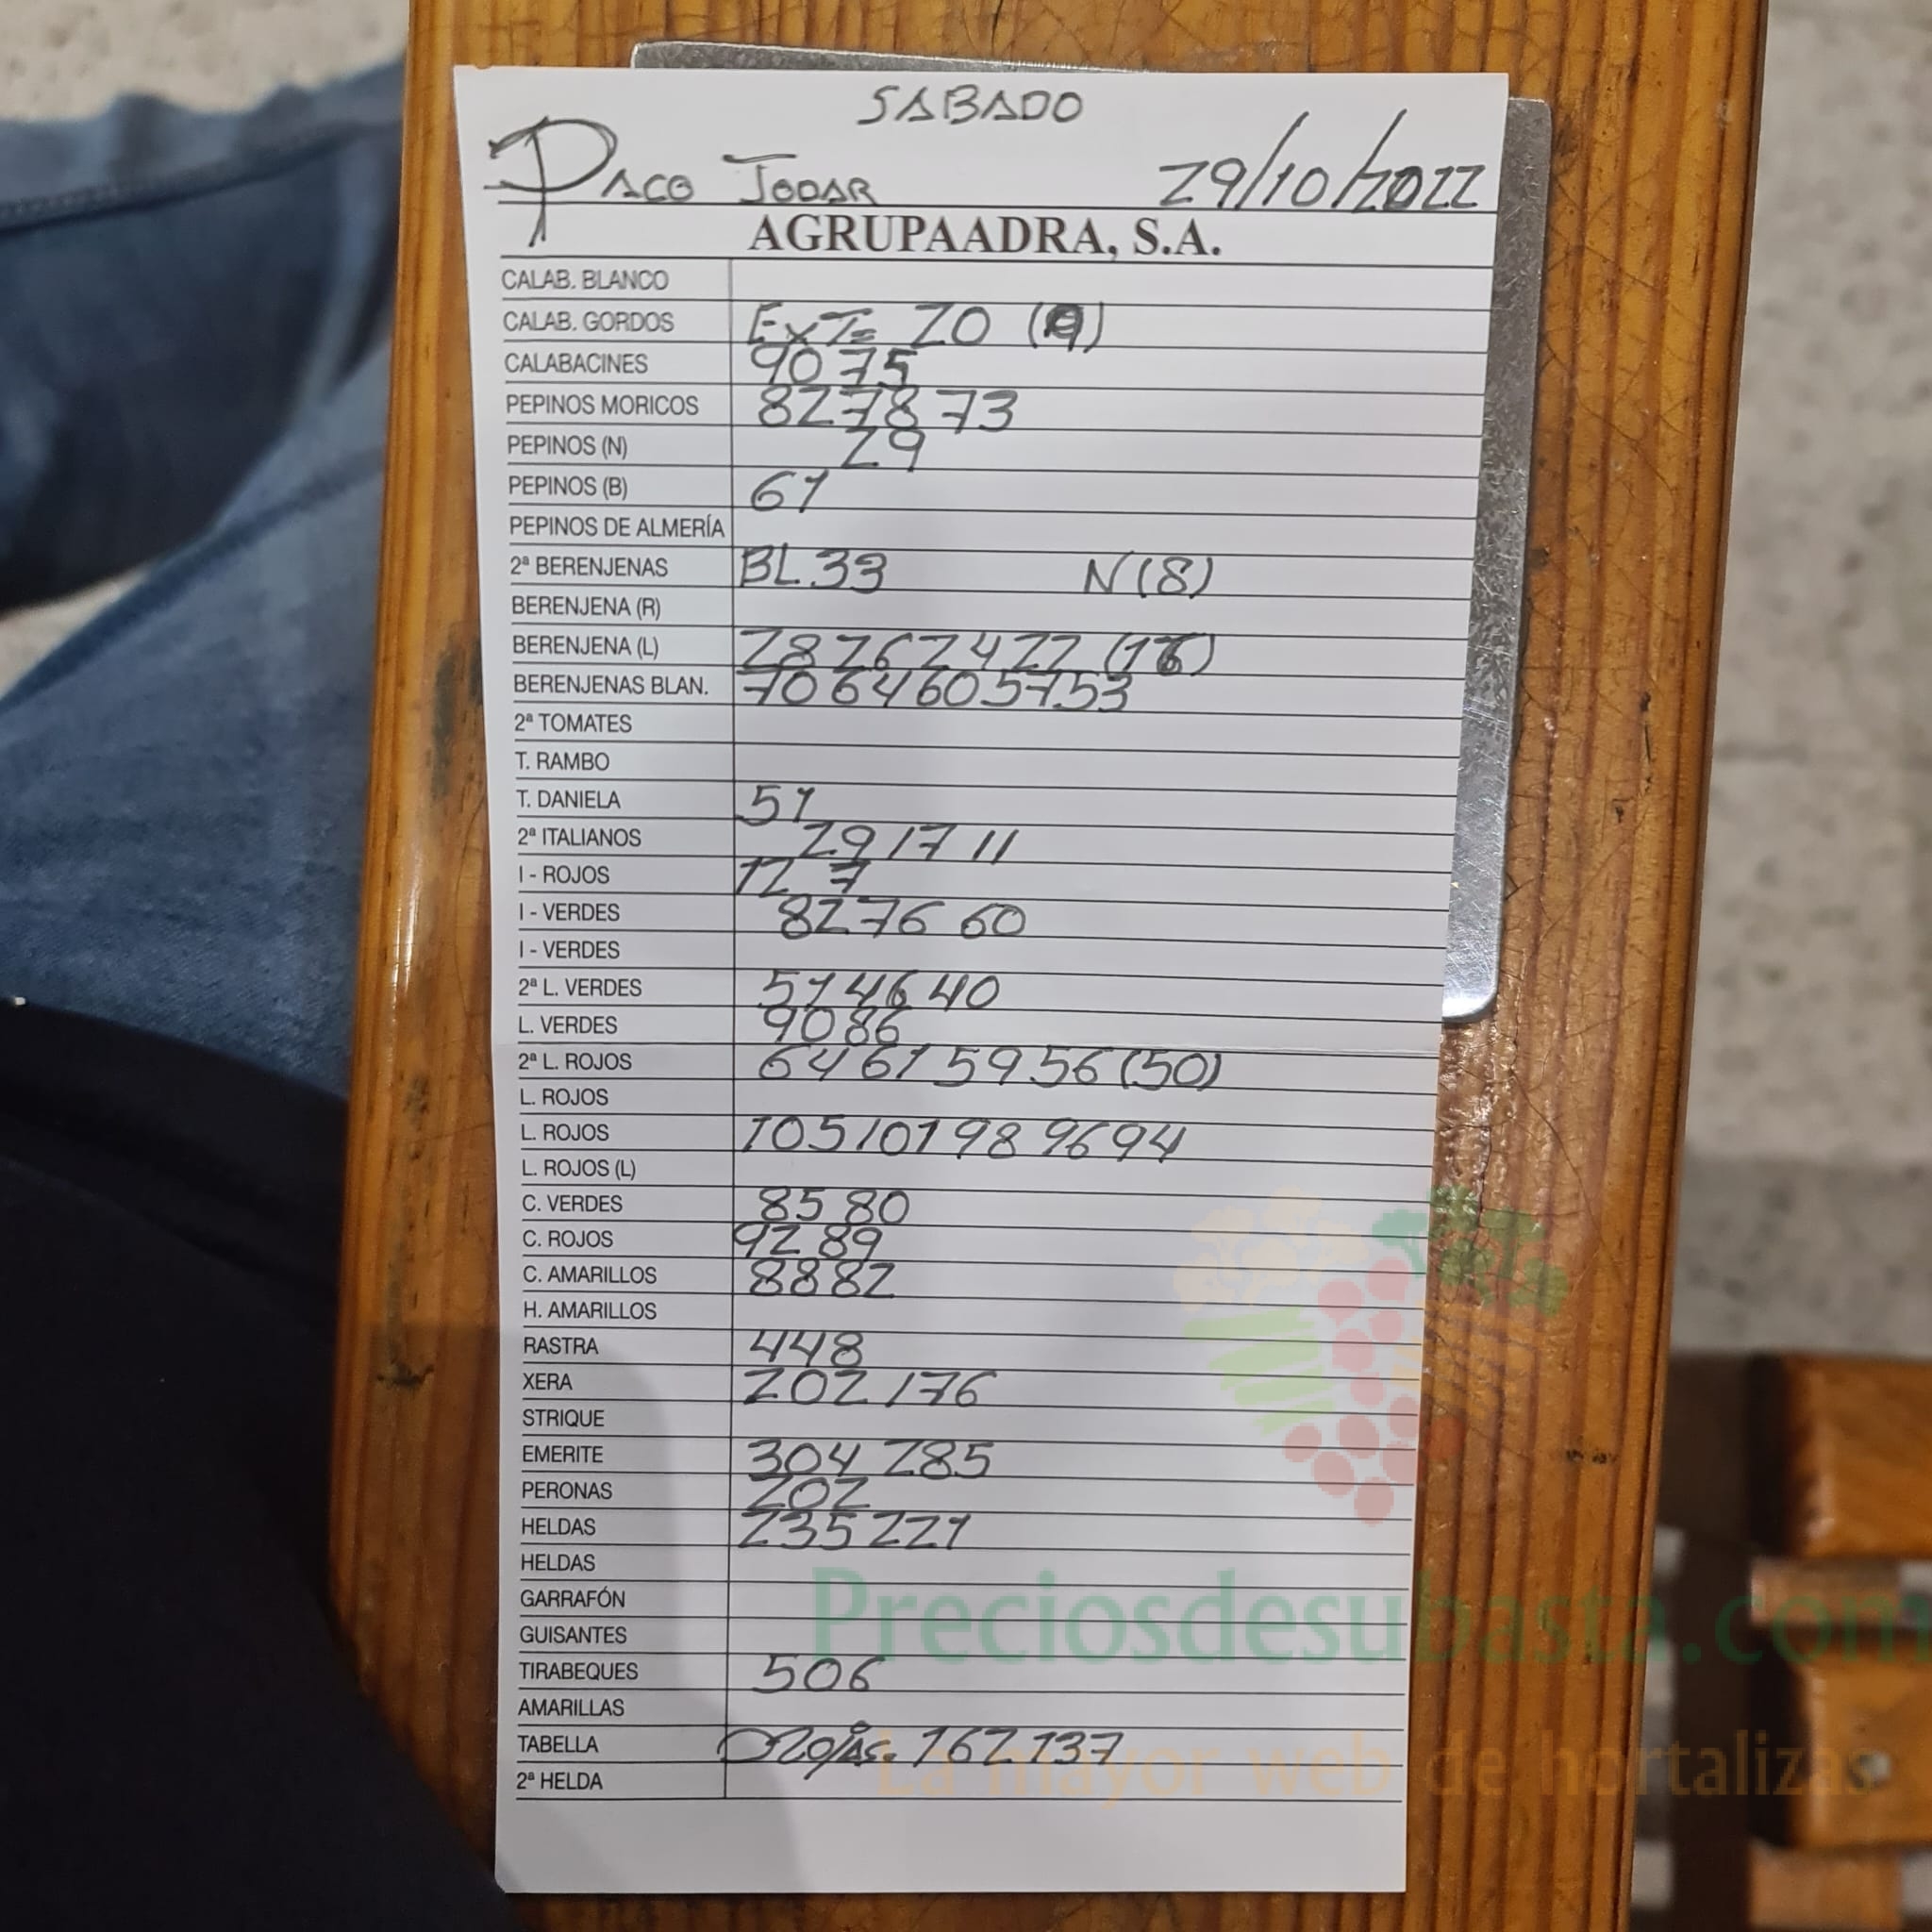 SABADO
PACO JODAR 29/10/2022
AGRUPAADRA, S.A.
CALAB. BLANCO
CALAB. GORDOS EXT= 20 (9)
CALABACINES 90 75
PEPINOS MORICOS 82 78 73
PEPINOS (N) 29
PEPINOS (B) 61
PEPINOS DE ALMERÍA
2ª BERENJENAS BL.33 N(8)
BERENJENA (R)
BERENJENA (L) 28 26 24 22 (16)
BERENJENAS BLAN. 70 64 60 57 53
2ª TOMATES
T. RAMBO
T. DANIELA 51
2ª ITALIANOS 29 17 11
I - ROJOS 12 7
I - VERDES 82 76 60
I - VERDES
2ª L. VERDES 51 46 40
L. VERDES 90 86
2ª L. ROJOS 64 61 59 56 (50)
L. ROJOS
L. ROJOS 105 101 98 96 94
L. ROJOS (L)
C. VERDES 85 80
C. ROJOS 92 89
C. AMARILLOS 88 82
H. AMARILLOS
RASTRA 448
XERA 202 176
STRIQUE
EMERITE 304 285
PERONAS 202
HELDAS 235 221
HELDAS
GARRAFÓN
GUISANTES
Preciosdesubasta.com
TIRABEQUES 506
AMARILLAS
TABELLA 162 137
La mayor web de hortalizas
2ª HELDA